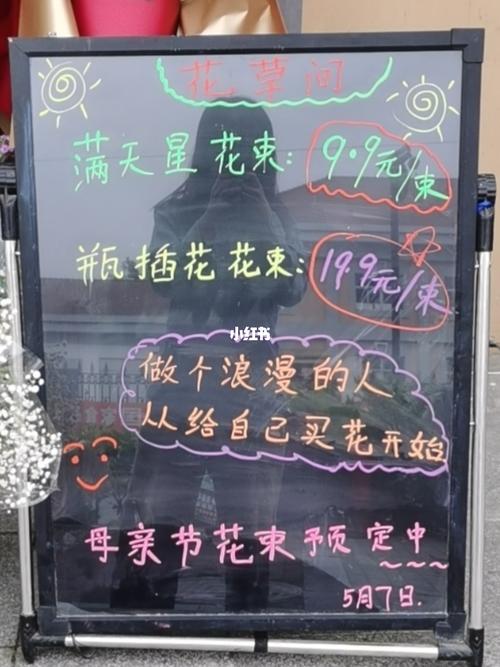 花草间
满天星花束: 9.9元/束
瓶插花花束: 19.9元/束
小红书
做个浪漫的人
从给自己买花开始
母亲节花束预定中
5月7日.